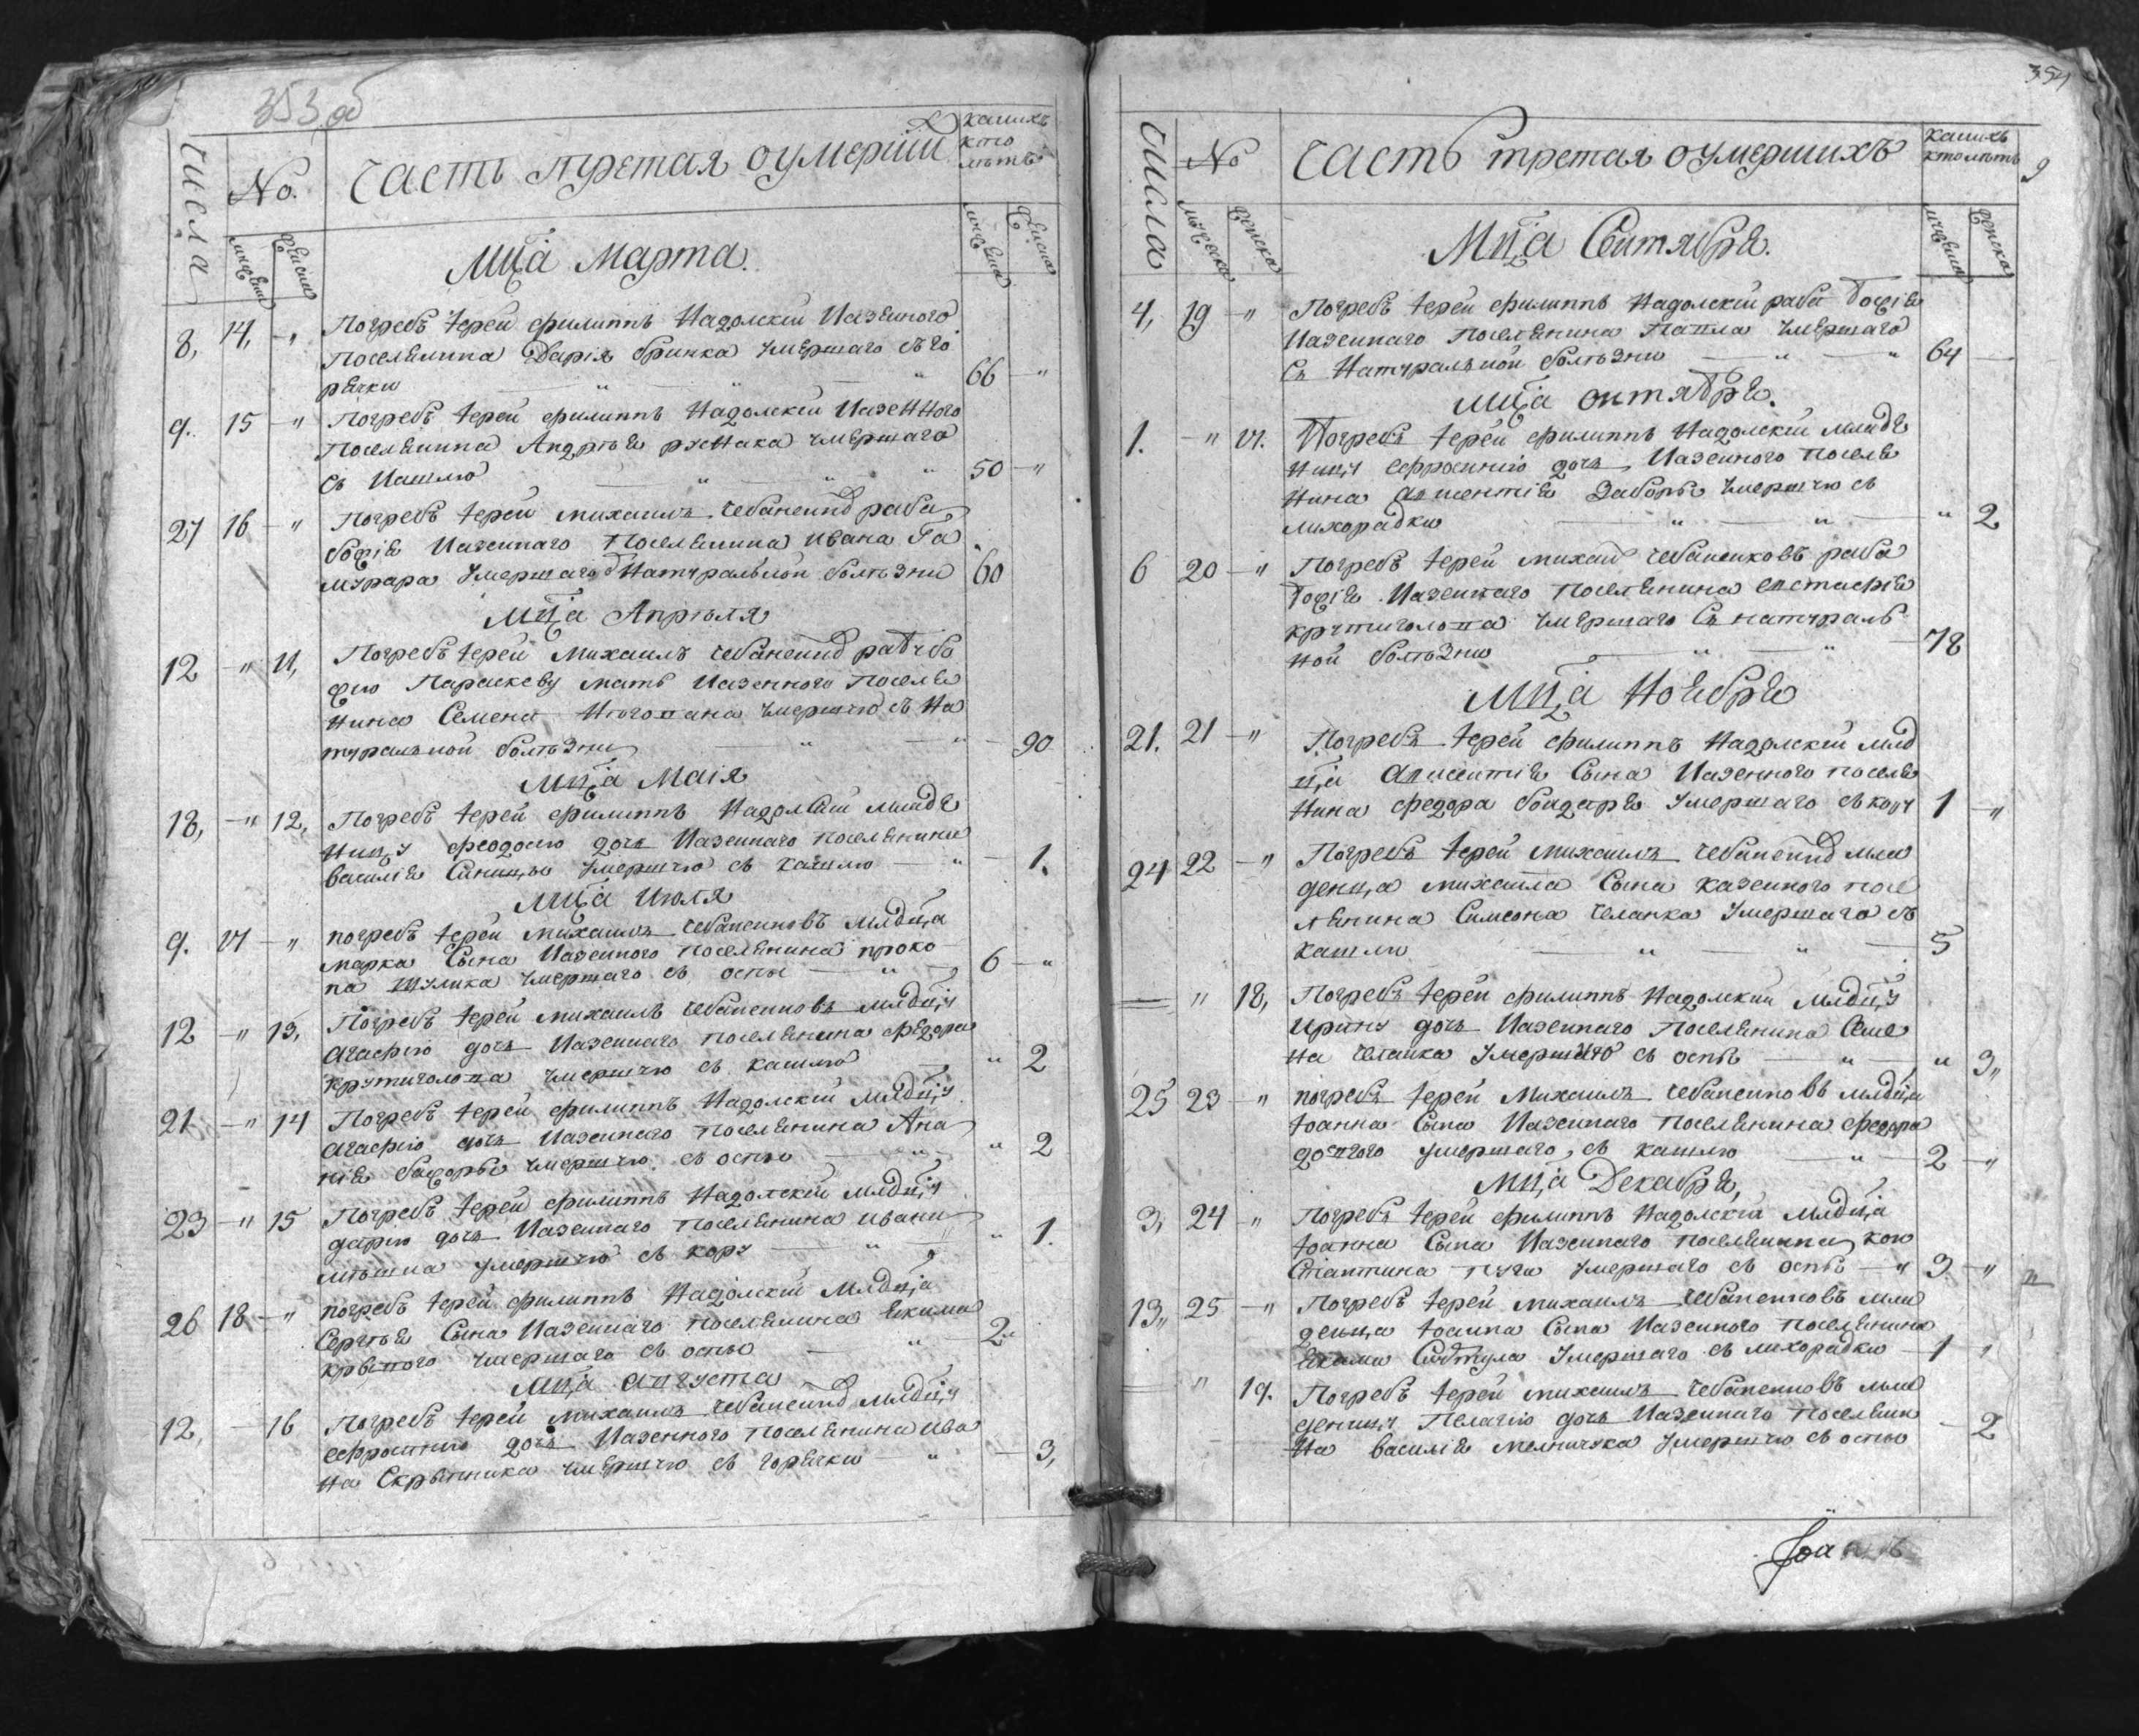 353 об
Числа
No.
Часть третая оумерши
какихъ
кто
лѣтъ
Мца Марта.
8, 14, - „ Погребъ Іерей Филиппъ Надолскій Казенного
Поселянина Дарія Бринка Умершаго съ го
рячки 66 - „
9. 15 - „ Погребъ Іерей Филиппъ Надолскій Казенного
Поселянина Андрѣя руснака умершаго
съ Кашлю 50 - „
27 16 - „ Погребъ Іерей Михаилъ раба
божія Казеннаго Поселянина Ивана Га
мурара Умершаго Натуралной болѣзни 60
Мца Апрѣля
12 - „ 11, Погребъ Іерей Михаилъ рабу бо
жію Параскеву мать Казенного Поселя
нина Семена умершую съ На
туралной болѣзни - 90
Мца Маія
18, - „ 12, Погребъ Іерей Филиппъ Надолскій младе
ницу Феодосію дочь Казеннаго поселянина
Василія Синицы Умершую съ кашлю - 1.
Мца Июля
9. 17 - „ погребъ Іерей Михаилъ Чебаненковъ млдца
марка Сына Казенного поселянина проко
па Шулика умершаго съ оспы 6 - „
12 - „ 13. Погребъ Іерей Михаилъ Чебаненковъ млдцу
агафію дочь Казеннаго поселянина Федора
крутиголова умершую съ кашлю „ 2
21 - „ 14 Погребъ Іерей Филиппъ Надолскій млдцу
агафію дочь Казеннаго поселянина Ана
нія умершую съ оспы „ 2
23 - „ 15 Погребъ Іерей Филиппъ Надолскій млдцу
дарію дочь Казеннаго поселянина ивана
умершую съ кору „ 1.
26 18 - „ погребъ Іерей Филиппъ Надолскій Млдца
Сергѣя Сына Казеннаго поселянина Якима
умершаго съ оспы 2 „
Мца августа
12, - 16 Погребъ Іерей Михаилъ млдцу
ефросинію дочь Казенного поселянина Ива
на Скрыпника умершую съ горячки - 3,
354
9
Числа
No
Часть третая оумершихъ
какихъ
кто лѣтъ
мужеска
женска
Мца Сентября.
4, 19 - „ Погребъ Іерей Филиппъ Надолскій раба Божія
Казеннаго поселянина Павла умершаго
съ Натуралной болѣзни 64 -
Мца октября.
1. - „ 17. Погребъ Іерей Филиппъ Надолскій младе
ницу ефросинію дочь Казенного поселя
нина авксентія Заболы умершую съ
лихорадки „ 2
6 20 - „ Погребъ Іерей Михаил Чебаненковъ раба
Божія Казеннаго поселянина евстафія
крутиголова умершаго съ натураль
ной болѣзни 78
Мца Ноября
21. 21 - „ Погребъ Іерей Филиппъ Надолскій млд
ца авксентія Сына Казенного поселя
нина Федора бондаря Умершаго съ кору 1 - „
24 22 - „ Погребъ Іерей Михаилъ мла
денца Михаила Сына казенного посе
лянина Симеона Челака Умершаго съ
кашлю 5
„ 18, Погребъ Іерей Филиппъ Надолскій млдцу
Ирину дочь Казеннаго Поселянина Симе
на Челака Умершую съ оспы „ 3„
25 23 - „ погребъ Іерей Михаилъ Чебаненковъ млдца
Іоанна Сына Казеннаго поселянина Федора
долгого умершаго съ кашлю 2 - „
Мца Декабря,
3, 24 - „ Погребъ Іерей Филиппъ Надолскій млдца
Іоанна Сына Казеннаго поселянина кон
стантина умершаго съ оспы - „ 3 - „
13„ 25 - „ Погребъ Іерей Михаилъ Чебаненковъ мла
денца Іоанна Сына Казенного поселянина
Умершаго съ лихорадки - 1 „
„ 19. Погребъ Іерей Михаилъ Чебаненковъ мла
деницу Пелагію дочь Казеннаго поселяни
на василія мелничука Умершую съ оспы - 2